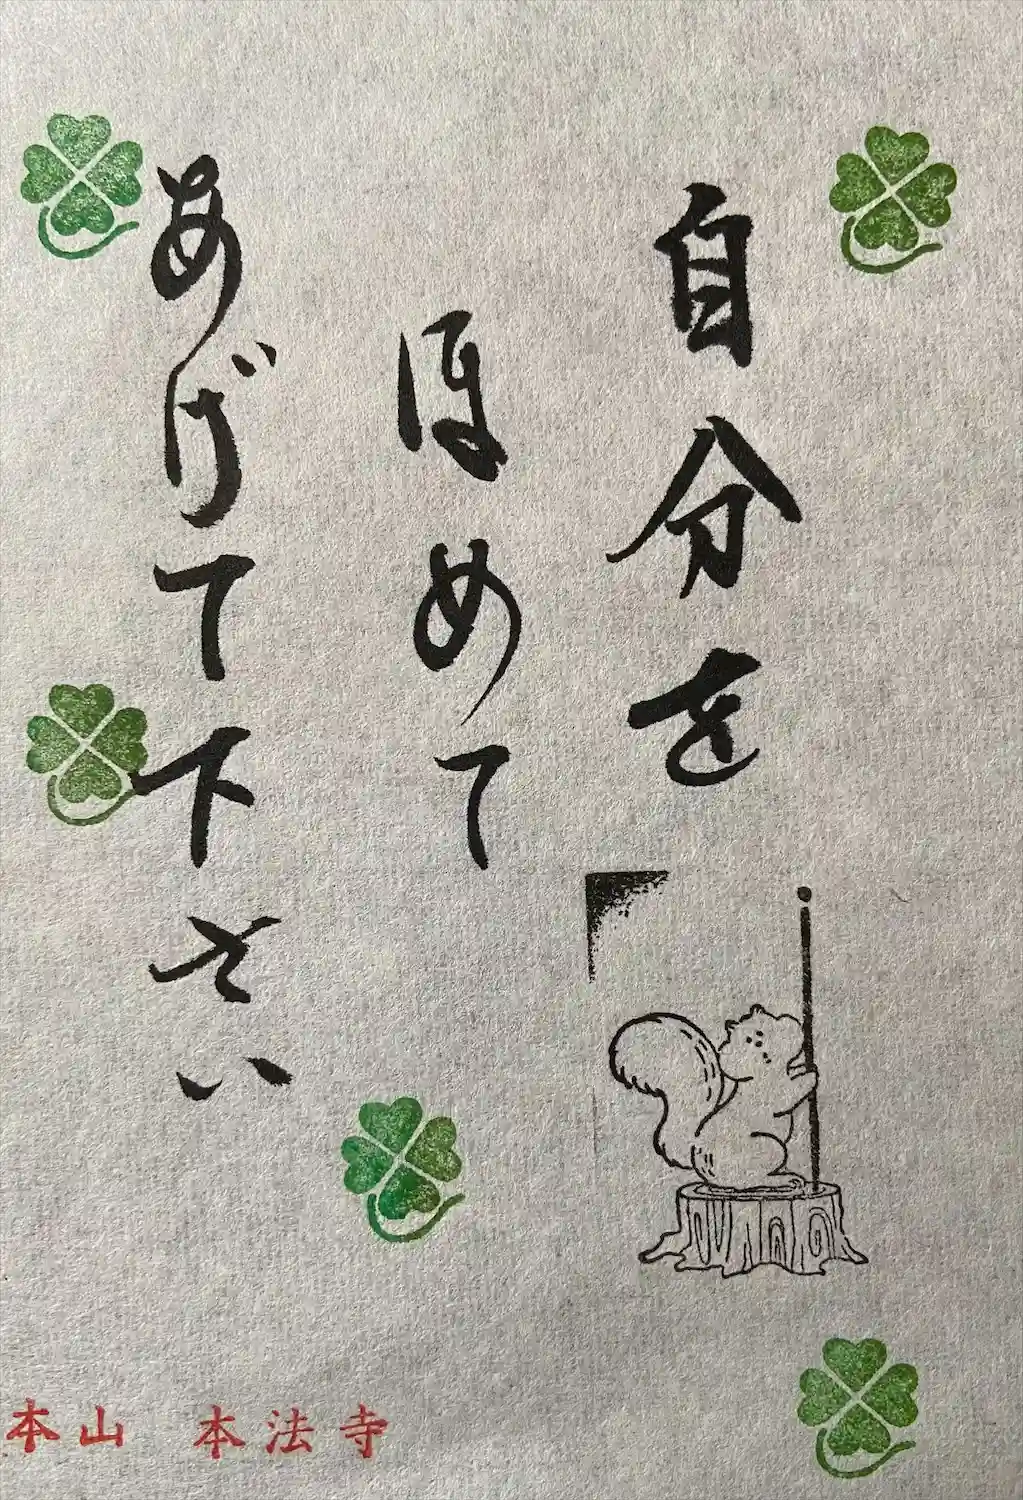 自分を
ほめて
あげて下さい
本山 本法寺